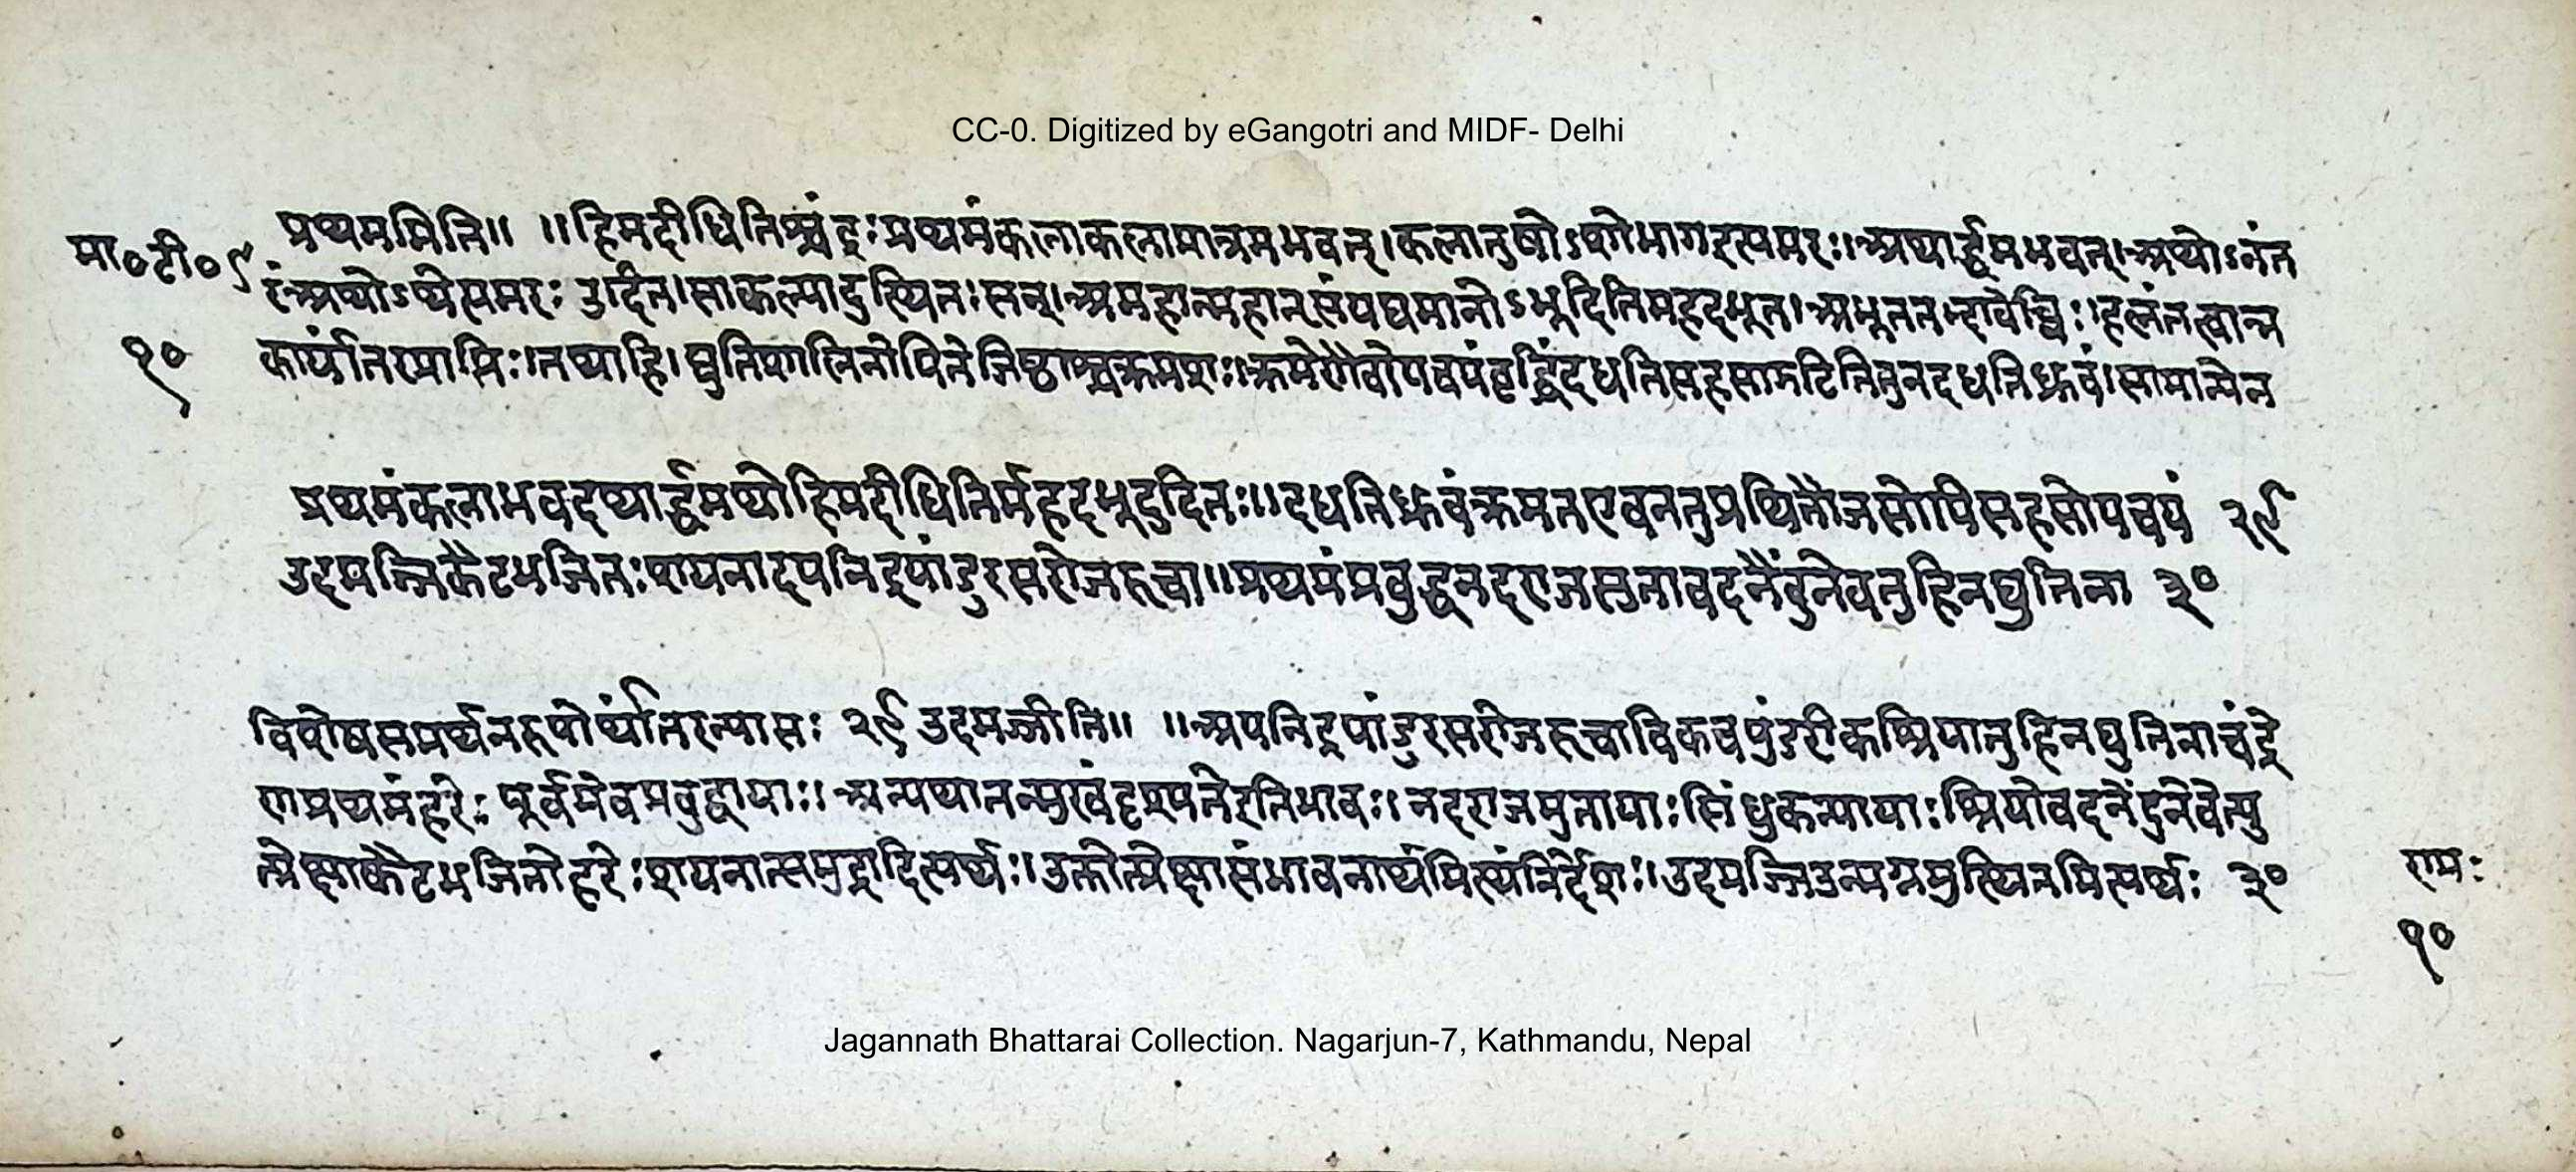 CC-0. Digitized by eGangotri and MIDF- Delhi
मा०टी०९
१०
प्रथममिति॥ ॥हिमदीधितिश्चंद्रःप्रथमंकलाकलामात्रमभवत्।कलातुषोऽशोभागइत्यमरः॥अथार्द्धमभवत्।अथोऽनंत
रंअथोऽथेत्यमरः उदित।साकल्यादुत्थितःसन्।अमहान्महान्संपद्यमानोऽभूदितिमहदभूत।अभूततद्भावेच्विः।हलंतत्वान्न
कार्यांतरप्राप्तिः।तथाहि।द्युतिशालिनोपितेजिष्ठाश्चक्रमशः।क्रमेणैवोपचयंवृद्धिंदधतिसहसाझटितितुनदधतिध्रुवं।सामान्येन
प्रथमंकलाभवदथार्द्धमथोहिमदीधितिर्महदभूदुदितः॥दधतिध्रुवंक्रमतएवनतुप्रथितौजसोपिसहसोपचयं २९
उदमज्जिकैटभजितःशयनादपनिद्रपांडुरसरोजरुचा॥प्रथमंप्रबुद्धनदराजसुतावदनेंदुनेवतुहिनद्युतिना ३०
विशेषसमर्थनरूपोर्थांतरन्यासः २९ उदमज्जीति॥ ॥अपनिद्रपांडुरसरोजरुचाविकचपुंडरीकश्रियातुहिनद्युतिनाचंद्रे
णप्रथमंहरेः पूर्वमेवप्रबुद्धायाः। अन्यथातन्मुखंदृश्यतेरितिभावः। नदराजसुतायाःसिंधुकन्यायाःश्रियोवदनेंदुनेवेत्यु
त्प्रेक्षाकैटभजितोहरेःशयनात्समुद्रादित्यर्थः।उक्तोत्प्रेक्षासंभावनार्थमित्थंनिर्देशः।उदमज्जिउन्मग्नमुत्थितमित्यर्थः ३०
रामः
१०
Jagannath Bhattarai Collection. Nagarjun-7, Kathmandu, Nepal